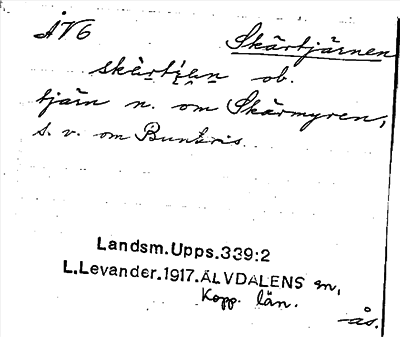 ÅV6
Skärtjärnen
ob.
tjärn n. om Skärmyren,
s. v. om Bunkris.
Landsm.Upps.339:2
L.Levander.1917.ÄLVDALENS sn,
Kopp. län.
-ås.